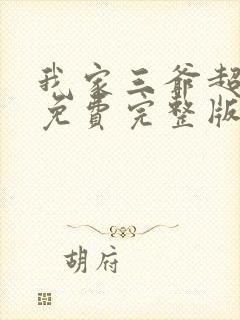 我家三爷超
免費完整版
胡府